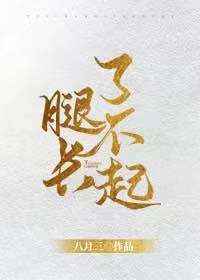 腿长
了不起
八月三 作品